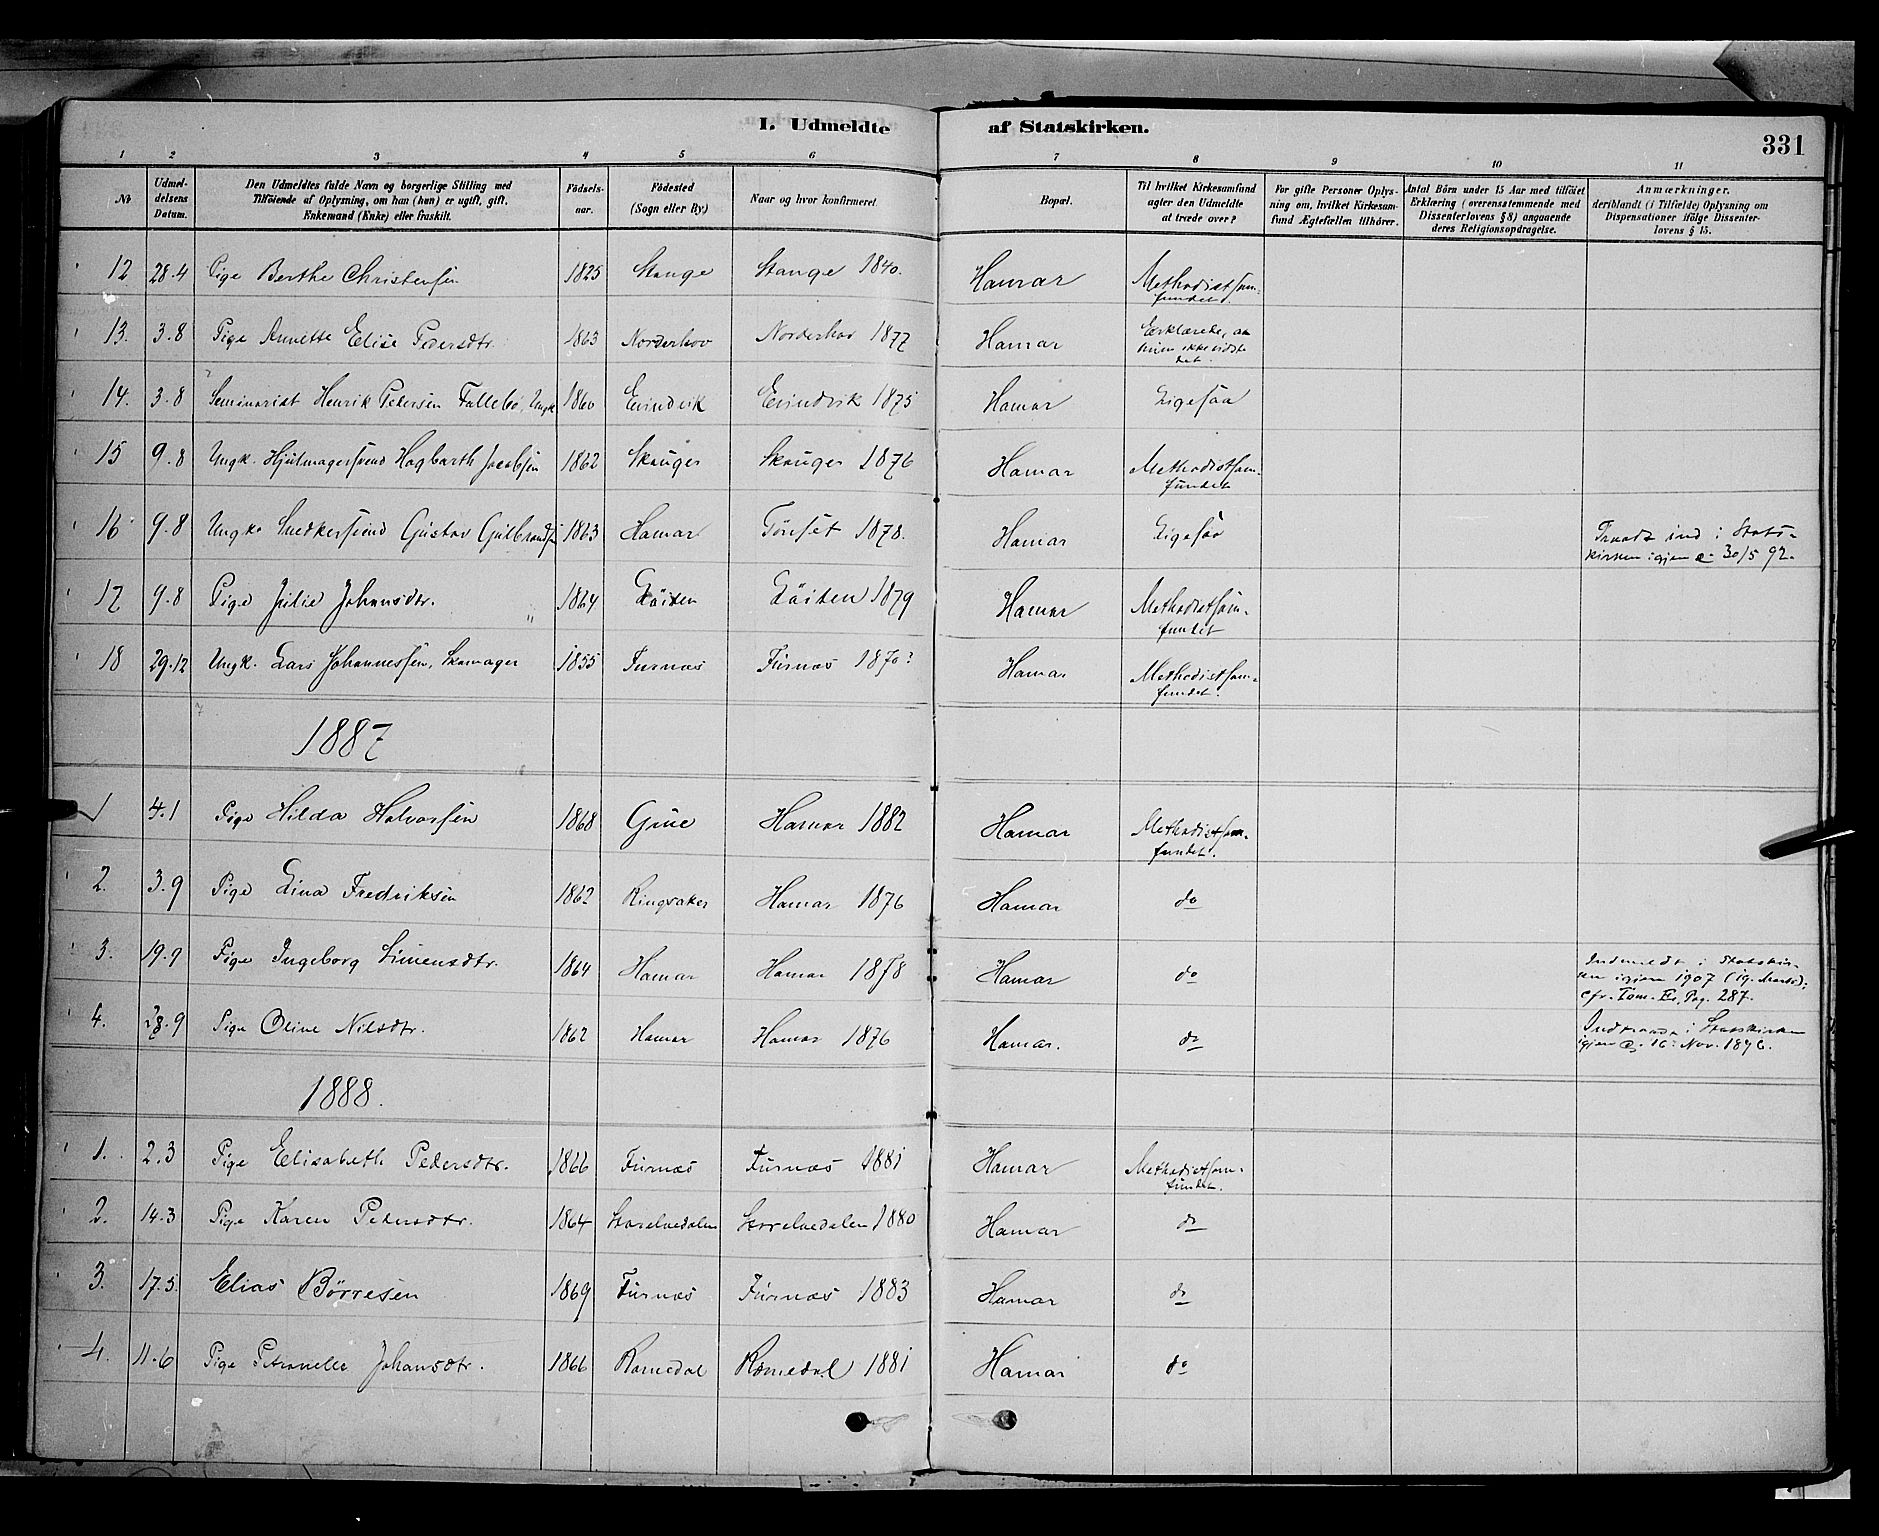 I. Udmeldte af Statskirken.
331
1 2 3 4 5 6 7 8 9 10 11
No
Udmel-
delsens
Datum.
Den Udmeldtes fulde Navn og borgerlige Stilling med
Tilføiende af Oplysning, om han (hun) er ugift, gift,
Enkemand (Enke) eller fraskilt.
Fødsels-
aar.
Fødested
(Sogn eller By.)
Naar og hvor konfirmeret.
Bopæl.
Til hvilket Kirkesamfund
agter den Udmeldte
at træde over?
For gifte Personer Oplys-
ning om, hvilket Kirkesam-
fund Ægtefællen tilhører.
Antal Børn under 15 Aar med tilføiet
Erklæring (overensstemmende med
Dissenterlovens § 8) angaaende
deres Religionsopdragelse.
Anmærkninger,
deriblandt (i Tilfælde) Oplysning om
Dispensationer ifølge Dissenter-
lovens § 15.
12 28.4 Pige Berthe Christensen 1825 Stange Stange 1840. Hamar Methodistsam-
fundet.
13. 3.8 Pige Annette Elise Pedersdtr. 1863 Norderhov Norderhov 1877 Hamar Erklærede, at
hun ikke vidste
det.
14. 3.8 Seminarist Henrik Petersen Fallebø, Ungk. 1860 Evindvik Evindvik 1875 Hamar Ligesaa
15 9.8 Ungk. Hjulmagersvend Hagbarth Jacobsen 1862 Skauger Skauger 1876 Hamar Methodistsam-
fundet
16 9.8 Ungk. Snedkersvend Gustav Gulbrandsen 1863 Hamar Tønset 1878. Hamar Ligesaa Traadt ind i Stats-
kirken igjen 30/5 92.
17 9.8 Pige Julie Johansdtr. 1864 Løiten Løiten 1879 Hamar Methodistsam-
fundet
18 29.12 Ungk. Lars Johannessen, Skomager 1855 Furnæs Furnæs 1870? Hamar Methodistsam-
fundet.
1887
1 4.1 Pige Hilda Halvorsen 1868 Grue Hamar 1882 Hamar Methodistsam-
fundet.
2. 3.9 Pige Lina Fredriksen 1862 Ringsaker Hamar 1876 Hamar do
3. 19.9 Pige Ingeborg Simensdtr. 1864 Hamar Hamar 1878 Hamar do Indmeldt i Statskir-
ken igjen 1907 (19. Marts);
cfr. Pag. 287.
4. 28.9 Pige Oline Nilsdtr. 1862 Hamar Hamar 1876 Hamar. do Indtraadt i Statskirken
igjen 16. Nov. 1896.
1888.
1. 2.3 Pige Elisabeth Pedersdtr. 1866 Furnæs Furnæs 1881 Hamar Methodistsam-
fundet.
2. 14.3 Pige Karen Petersdtr. 1864 Storelvedalen Storelvedalen 1880 Hamar do
3. 17.5. Elias Børresen 1869 Furnæs Furnæs 1883 Hamar do
4. 11.6 Pige Petronelle Johansdtr. 1866 Romedal Romedal 1881 Hamar do